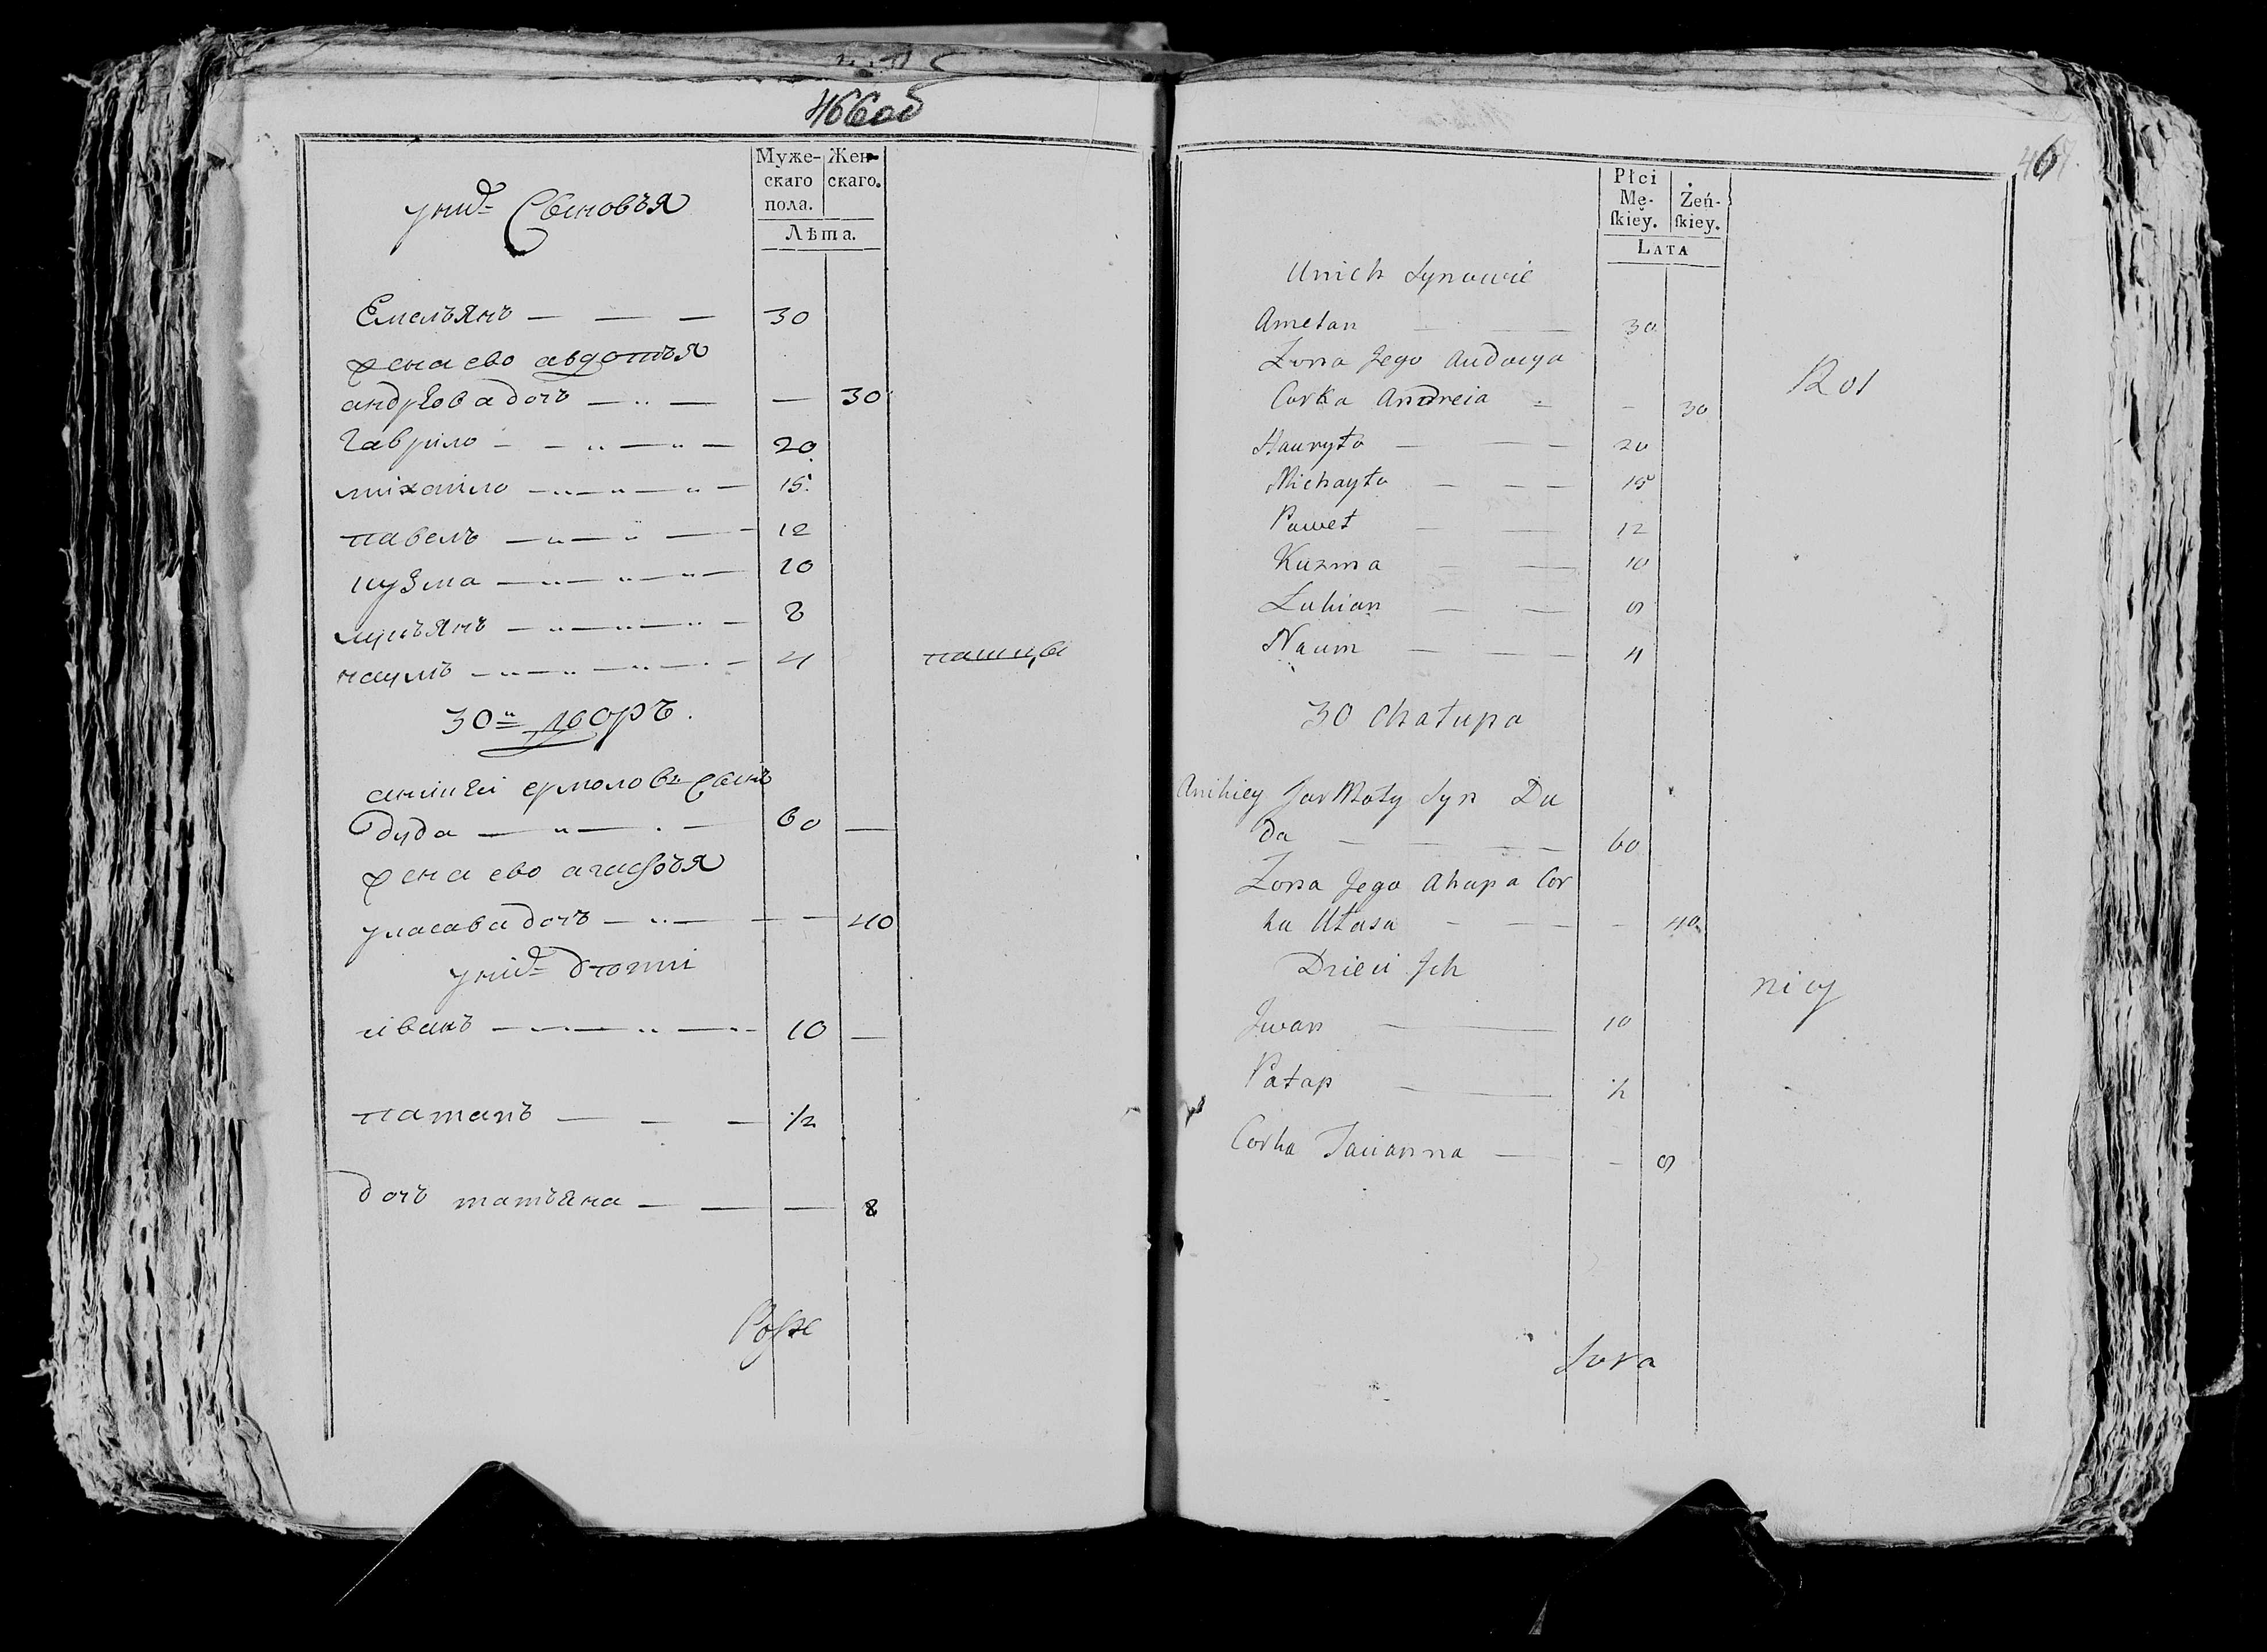 466об
Муже-
скаго
пола.
Жен-
скаго.
Лѣта.
у нихъ Сыновъя
Емелъянъ — — — 30
жена ево авдотъя
андрѣова дочъ — — — 30
Гаврило — — — 20
михайло — — — 15
павелъ — — — 12
кузма — — — 10
лукъянъ — — — 8
наумъ — — — 4
пашцы
30й дворъ.
аникѣй ермоловъ сынъ
дуда — — — 60 —
жена ево агафъя
уласава дочъ — — — 40
у нихъ дѣти
иванъ — — — 10 —
патапъ — — — 1/2
дочъ татъяна — — — 8
467
Płci
Mę-
ſkiey.
Żeń-
ſkiey.
Lata
Unich Synowie
Ametan — — 30
Zona Jego Audocya
Corka Andreia — — 30
Rol
Hauryło — — 20
Michayło — — — 15
Paweł — — 12
Kuzma — — 10
Lukian — — 8
Naum — — 4
30 Chałupa
Anikiey Jarmoły Syn Du
da — — — — 60
Zona Jego Ahapa Cor
ka Ułasa — — — — 40
Dzieci Jch
nicy
Jwan — — 10
Patap — — 1/2
Corka Tacianna — — 8